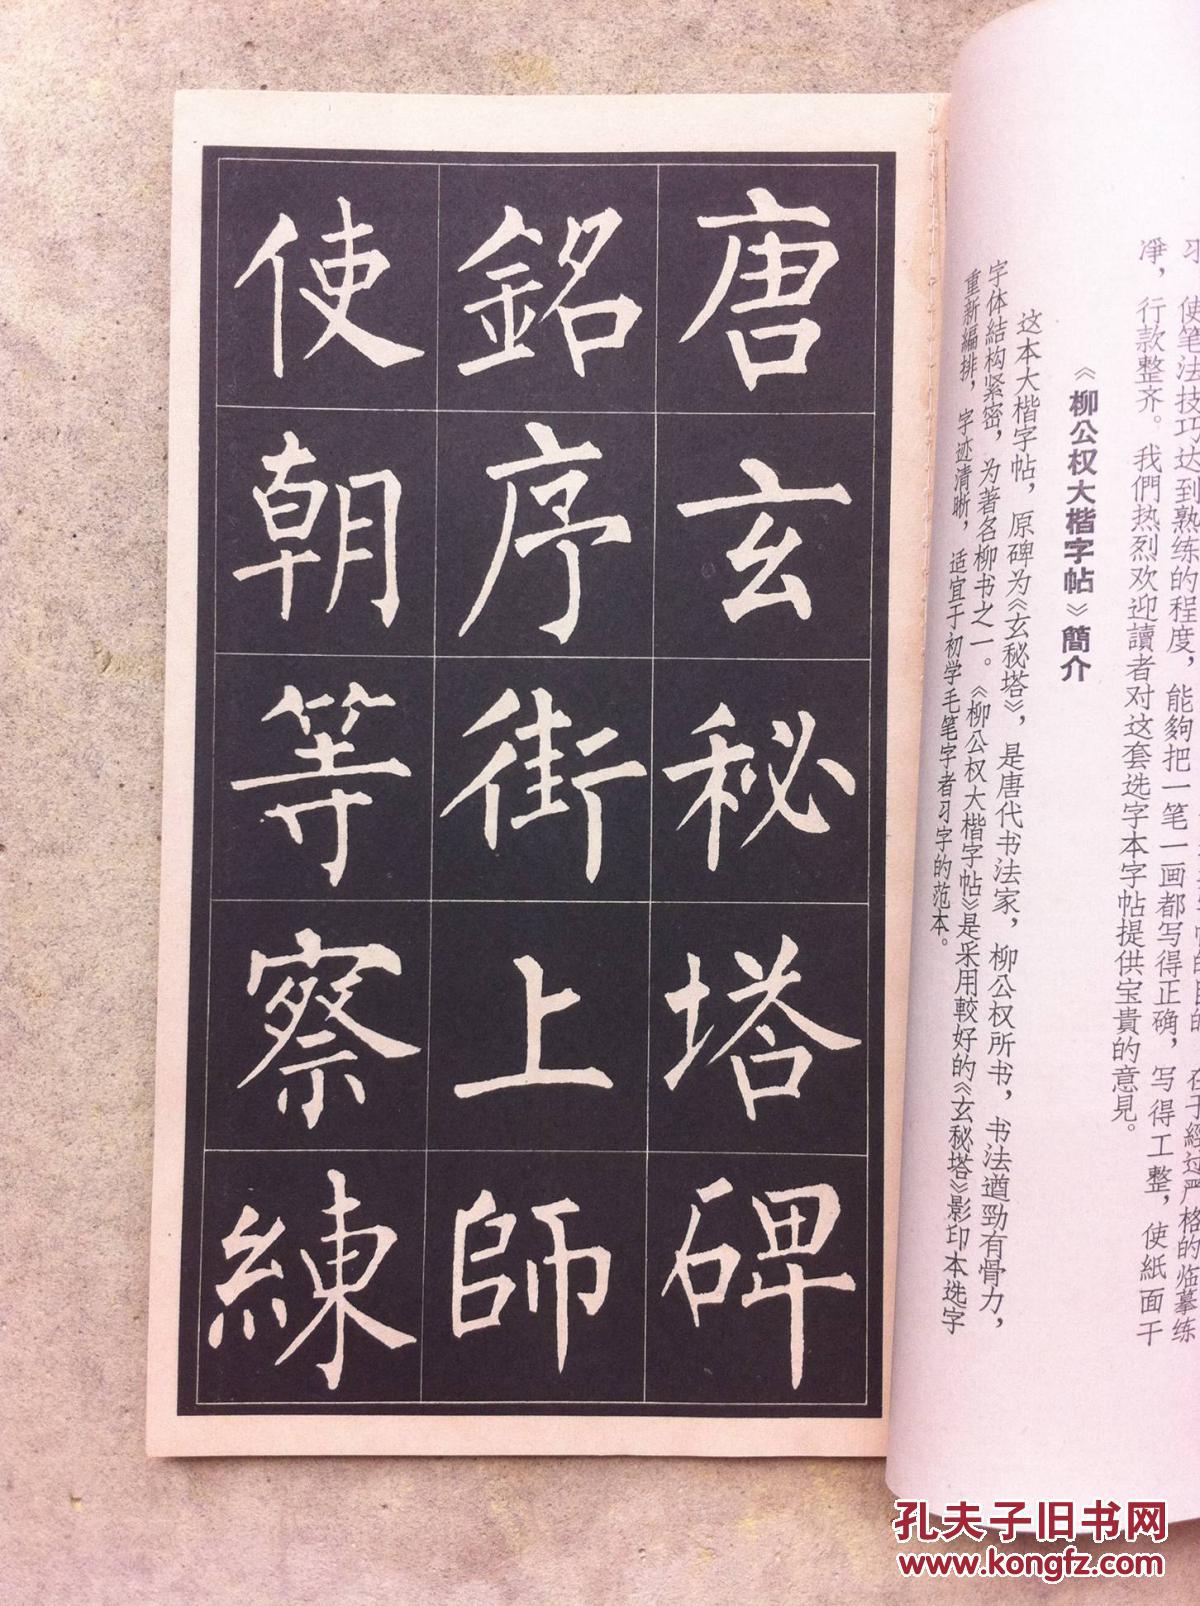 使笔法技巧达到熟练的程度，能夠把一笔一画都写得正确，写得工整，使紙面干
凈，行款整齐。我們热烈欢迎讀者对这套选字本字帖提供宝貴的意見。
《柳公权大楷字帖》簡介
这本大楷字帖，原碑为《玄秘塔》，是唐代书法家，柳公权所书，书法遒勁有骨力，
字体結构紧密，为著名柳书之一。《柳公权大楷字帖》是采用較好的《玄秘塔》影印本选字
重新編排，字迹清晰，适宜于初学毛笔字者习字的范本。
唐玄秘塔碑
銘序街上師
使朝等察練
孔夫子旧书网
www.kongfz.com